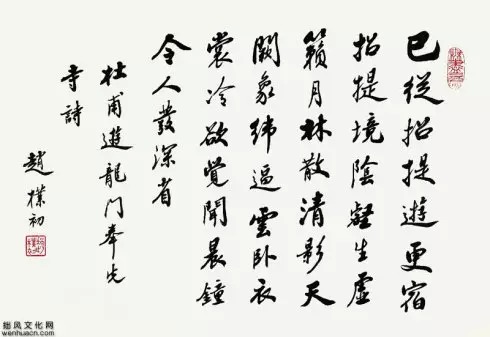 已從招提遊更宿
招提境陰壑生虛
籟月林散清影天
闕象緯逼雲臥衣
裳冷欲覺聞晨鐘
令人發深省
杜甫遊龍門奉先
寺詩
趙樸初
拙风文化网
wenhuacn.com